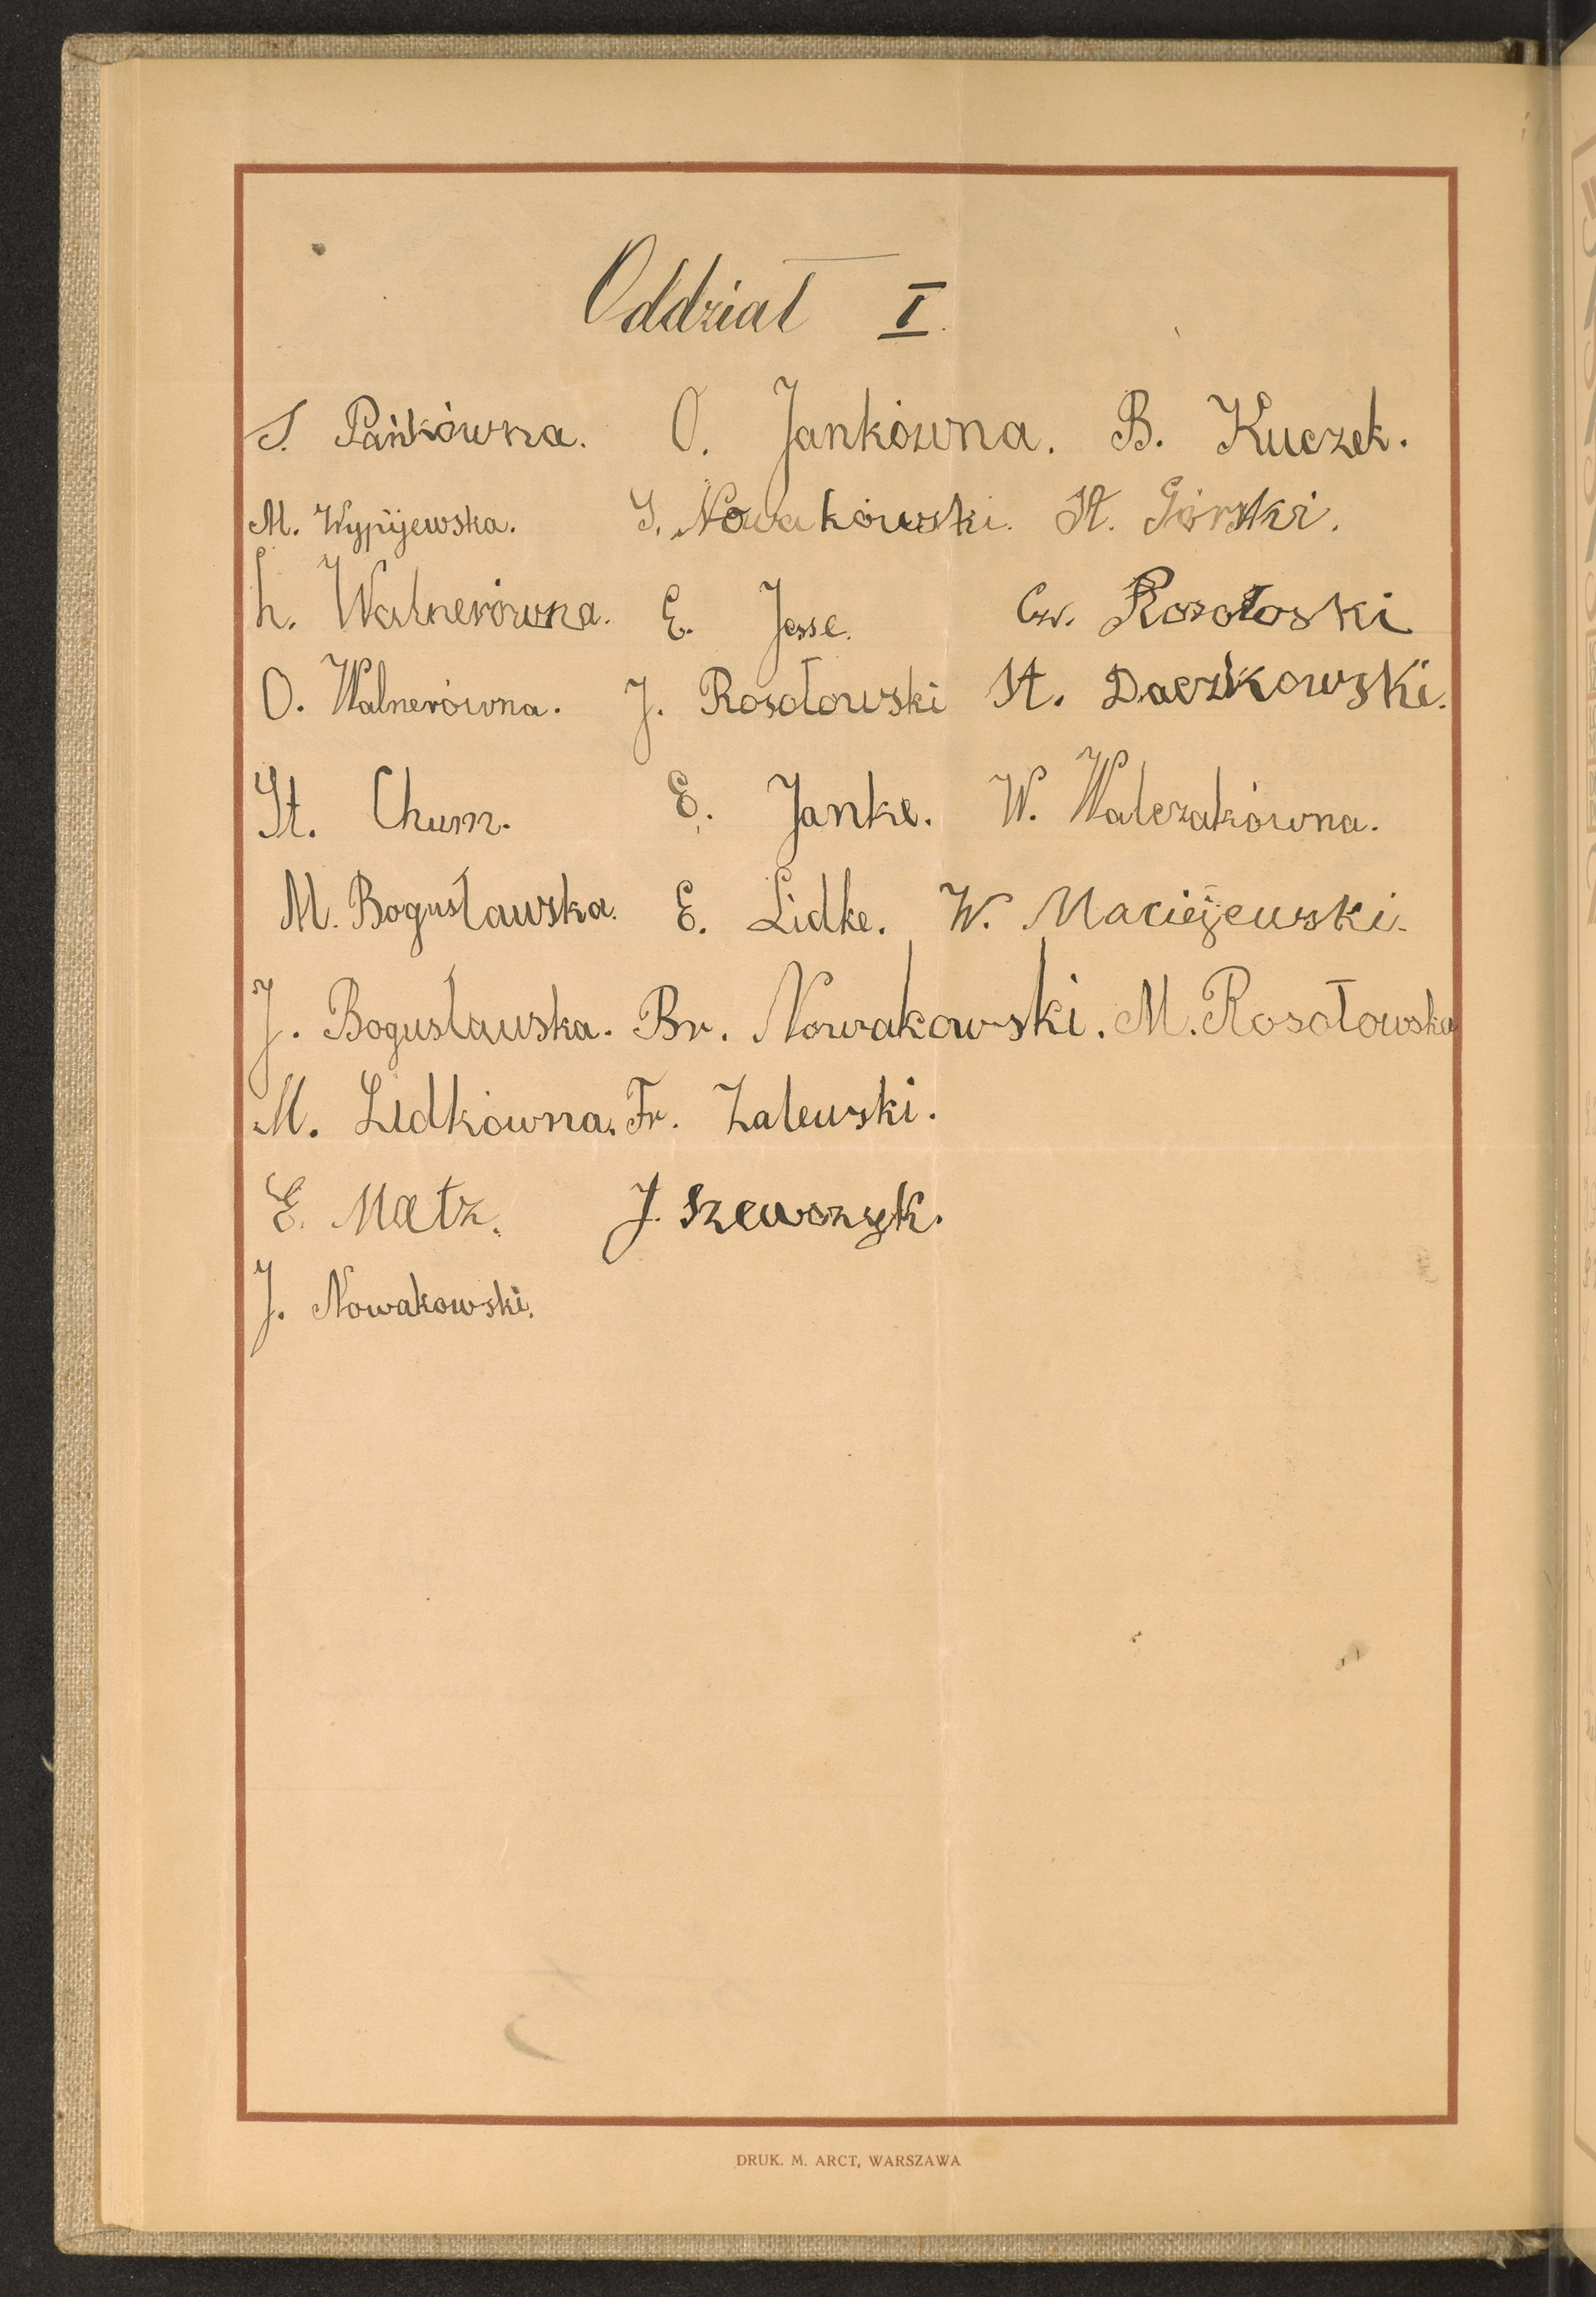 Oddział I.
S. Pańkówna. O. Jankówna. B. Kuczek.
M. Wypijewska. J. Nowakowski. St. Górski.
L. Walnerówna. E. Jesse. Cz. Rosołoski
O. Walnerówna. J. Rosołowski St. Daczkowski.
St. Chum. E. Janke. W. Walczakówna.
M. Bogusławska. E. Lidke. W. Maciejewski.
J. Bogusławska. Br. Nowakowski. M. Rosołowska
M. Lidkówna. Fr. Zalewski.
E. Matz. J. Szewczyk.
J. Nowakowski.
DRUK. M. ARCT, WARSZAWA